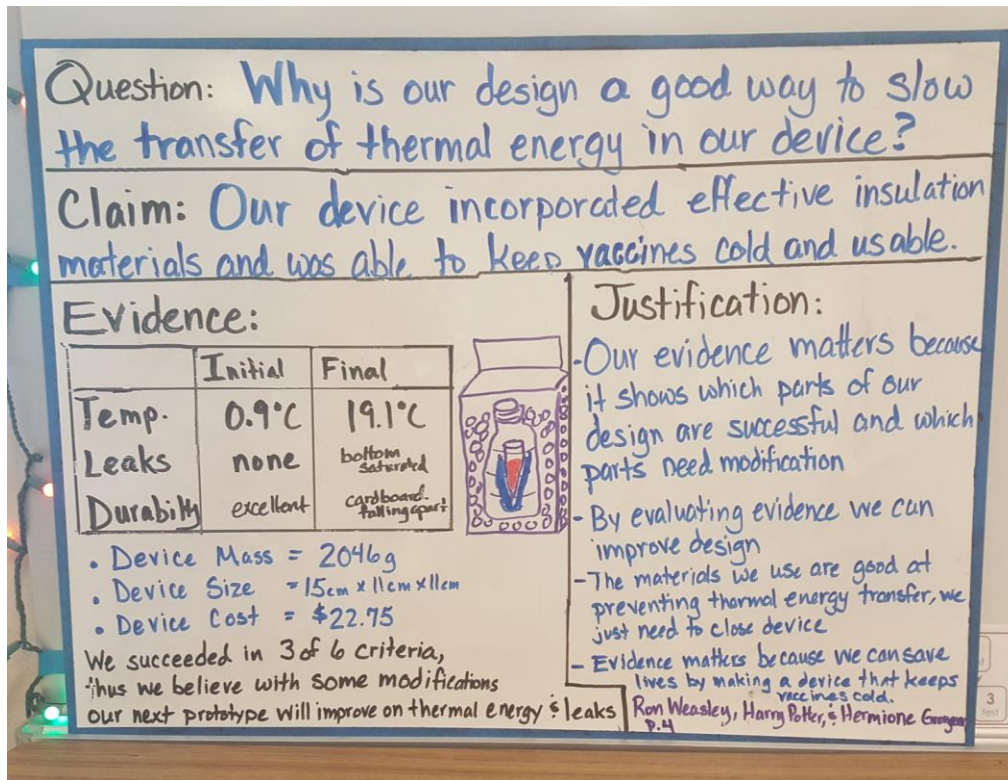 Question: Why is our design a good way to slow
the transfer of thermal energy in our device?
Claim: Our device incorporated effective insulation
materials and was able to keep vaccines cold and usable.
Evidence:
Initial Final
Temp. 0.9°C 19.1°C
Leaks none bottom saturated
Durability excellent cardboard falling apart
• Device Mass = 2046g
• Device Size = 15cm x 11cm x 11cm
• Device Cost = $22.75
We succeeded in 3 of 6 criteria,
thus we believe with some modifications
our next prototype will improve on thermal energy & leaks
Justification:
- Our evidence matters because
it shows which parts of our
design are successful and which
parts need modification
- By evaluating evidence we can
improve design
- The materials we use are good at
preventing thermal energy transfer, we
just need to close device
- Evidence matters because we can save
lives by making a device that keeps
vaccines cold.
Ron Weasley, Harry Potter, & Hermione
P.4
3